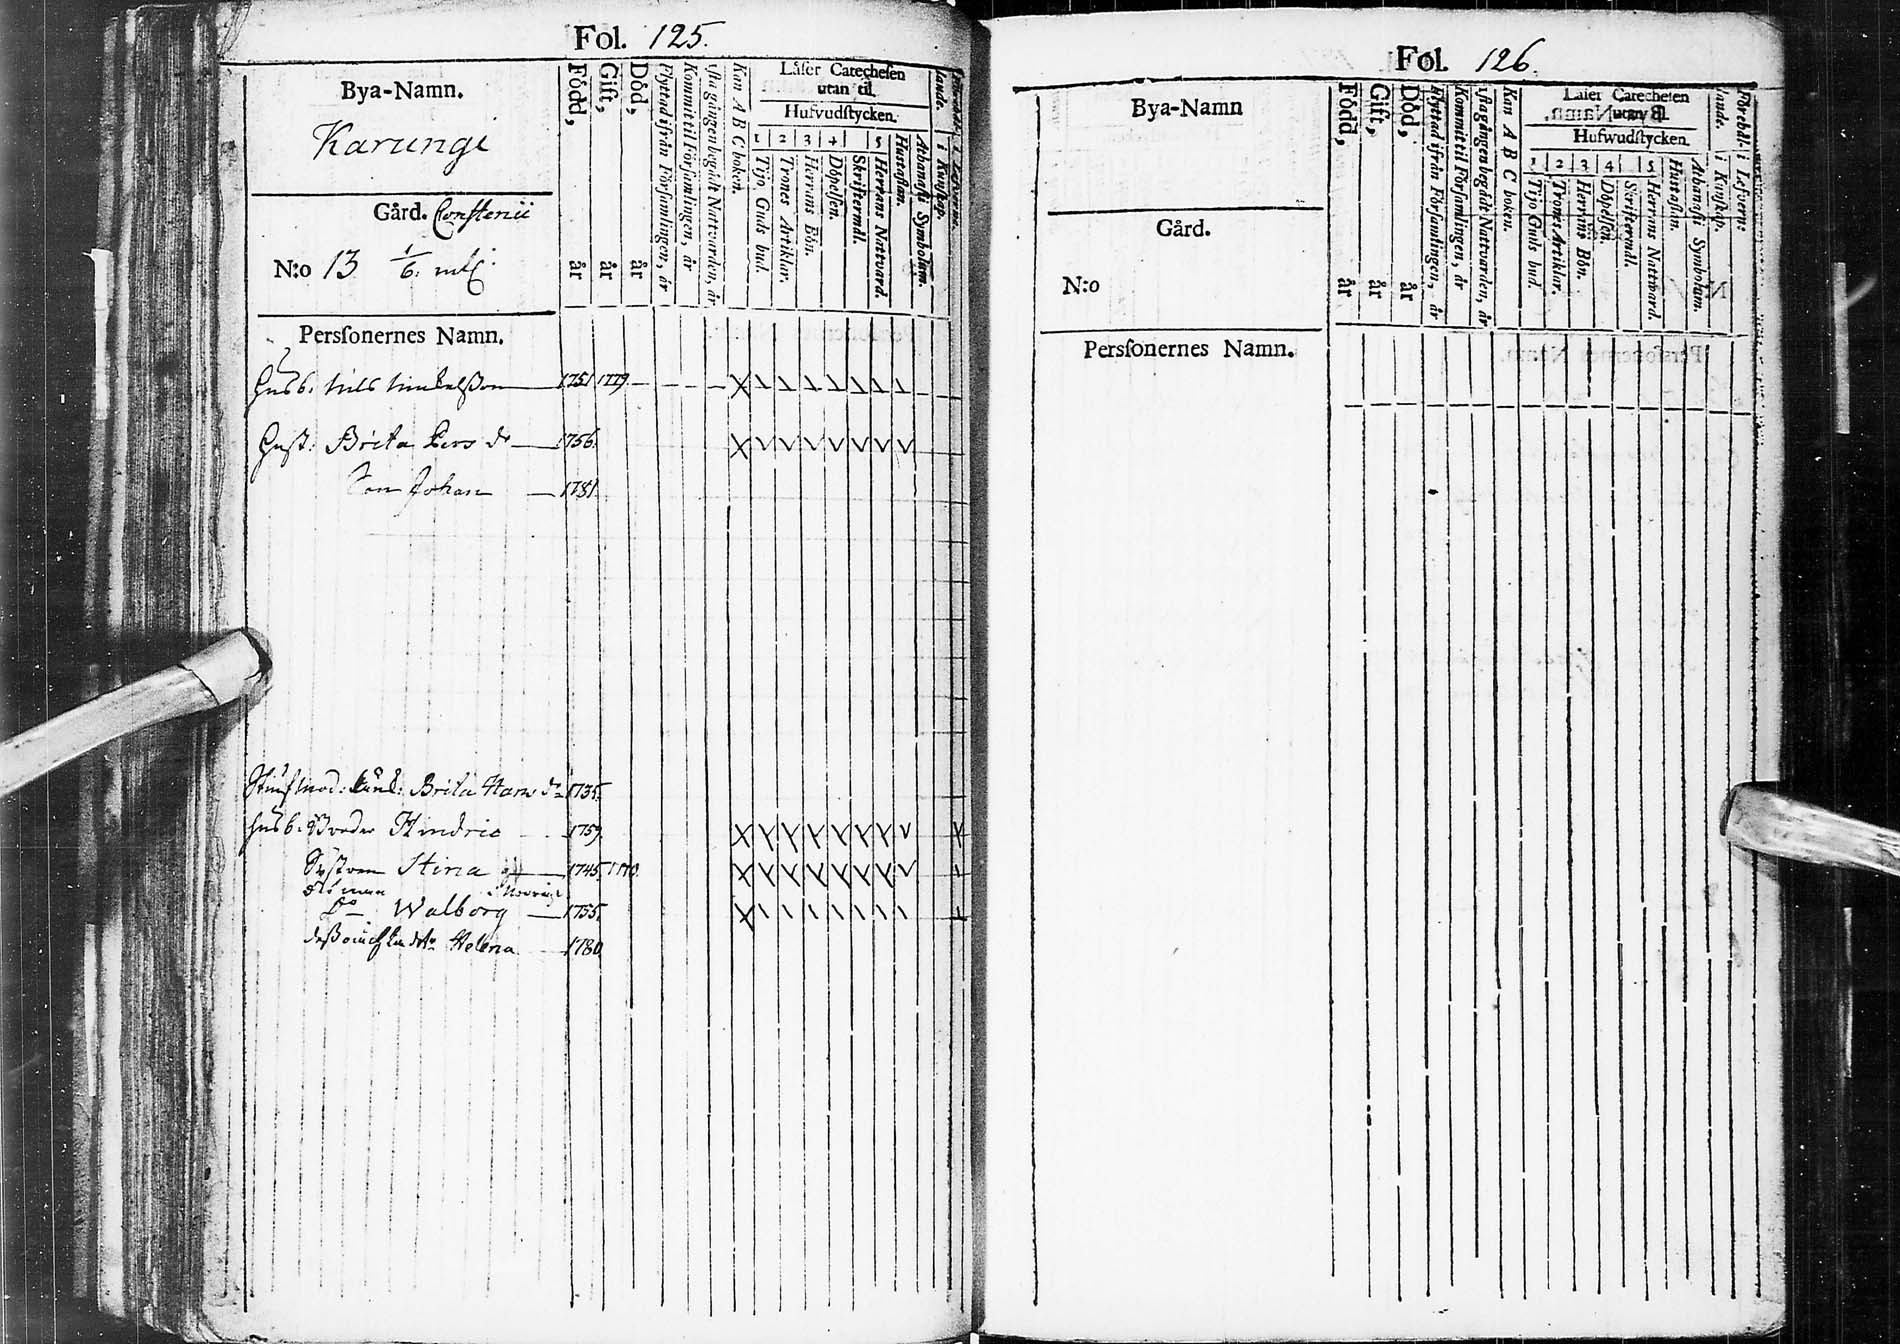 Fol. 125.
Bya-Namn.
Karungi
Gård. Consterii
N:o 13 1/6. mtl.
Född, år
Gift, år
Död, år
Flyttad ifrån Församlingen, år
Kommit til Församlingen, år
Kan A B C boken.
Låser Catechesen
utan til.
Hufvudstycken.
1 2 3 4 5
Tijo Guds bud.
Trones Artiklar.
Herrans Bön.
Döpelsen.
Skriftermål.
Herrans Nattvard.
Hustaflan.
Athanasii Symbolum.
i Kunskap.
Personernes Namn.
Husb. Nils Michelsson 1751 1779
Hust. Brita Pers dr 1756.
Son Johan 1781
Stiufmod. Brita Hans dr 1735.
Husb. Broder Hindric 1759.
Systren Stina 1745. 1770.
Do Walborg 1755.
Helena 1780
Fol. 126.
Bya-Namn
Gård.
N:o
Född, år
Gift, år
Död, år
Flyttad ifrån Församlingen, år
Kommit til Församlingen, år
1sta gången begådt Nattvarden, år
Kan A B C boken.
Låser Catechesen
utan til.
Hufwudstycken.
1 2 3 4 5
Tijo Guds bud.
Trones Artiklar.
Herrans Bön.
Döpelsen.
Skriftermål.
Herrans Nattvard.
Hustaflan.
Athanasii Symbolum.
i Kunskap.
i Lefverne
Personernes Namn.